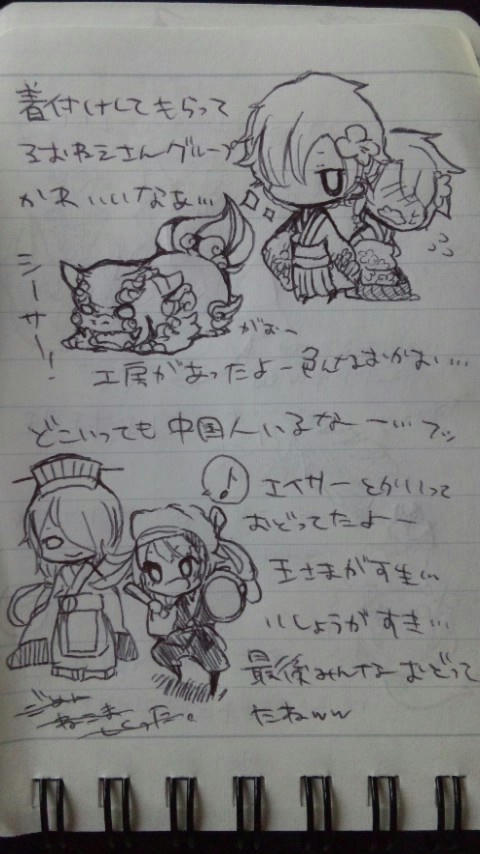 着付けしてもらって
るおねえさんグループ
かわいいなぁ…
シーサー!
がおー
工房があったよー色んなおかおい…
どこいっても中国人いるなー…フッ
♪
エイサーとかいって
おどってたよー
王さまがすき…
いしょうがすき…
最後みんなおどって
たねww